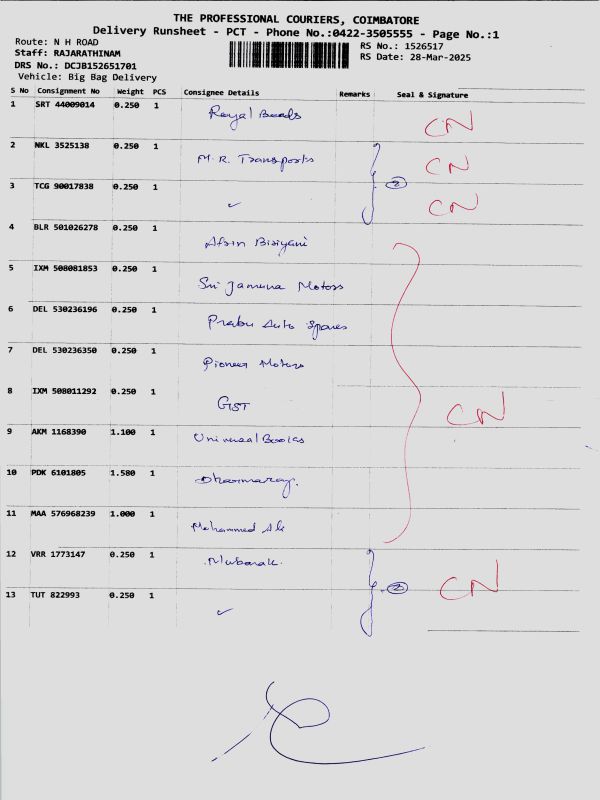 THE PROFESSIONAL COURIERS, COIMBATORE
Delivery Runsheet - PCT - Phone No.:0422-3505555 - Page No.:1
Route: N H ROAD
RS No.: 1526517
Staff: RAJARATHINAM
RS Date: 28-Mar-2025
DRS No.: DCJB152651701
Vehicle: Big Bag Delivery
S No Consignment No Weight PCS Consignee Details Remarks Seal & Signature
1 SRT 44009014 0.250 1 Royal Beads CN
2 NKL 3525138 0.250 1 M.R. Transports CN
2
3 TCG 90017838 0.250 1 ✓ CN
4 BLR 501026278 0.250 1 Afrin Biriyani
5 IXM 508081853 0.250 1 Sri Jamuna Motors
6 DEL 530236196 0.250 1 Prabu Auto Spares
7 DEL 530236350 0.250 1 Pioneer Motors
8 IXM 508011292 0.250 1 GST CN
9 AKM 1168390 1.100 1 Universal Books
10 PDK 6101805 1.580 1 Dharmaraj.
11 MAA 576968239 1.000 1 Mohammed Ali
12 VRR 1773147 0.250 1 Mubarak.
2 CN
13 TUT 822993 0.250 1 ✓